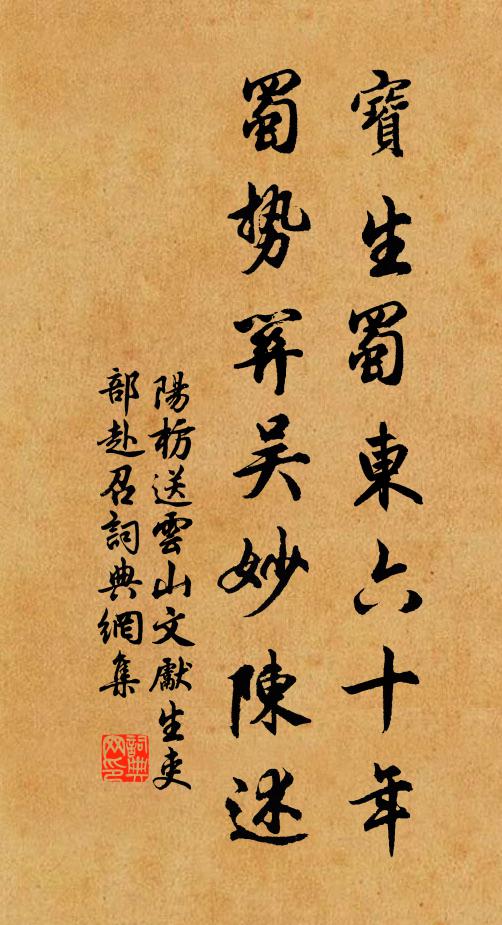 寶生蜀東六十年
蜀勢筭吳妙陳述
陽枋送雲山文獻生吏
部赴召詞典網集
詞典网印